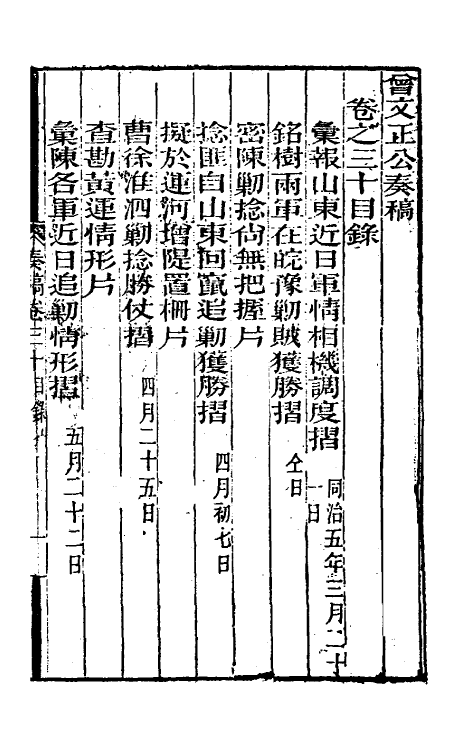 曾文正公奏稿
卷之三十目錄
彙報山東近日軍情相機調度摺 同治五年三月二十一日
銘樹兩軍在皖豫勦賊獲勝摺 仝日
密陳勦捻尙無把握片
捻匪自山東回竄追勦獲勝摺 四月初七日
擬於運河增隄置柵片
曹徐淮泗勦捻勝仗摺 四月二十五日
查勘黃運情形片
彙陳各軍近日追勦情形摺 五月二十二日
奏稿卷三十目錄 一